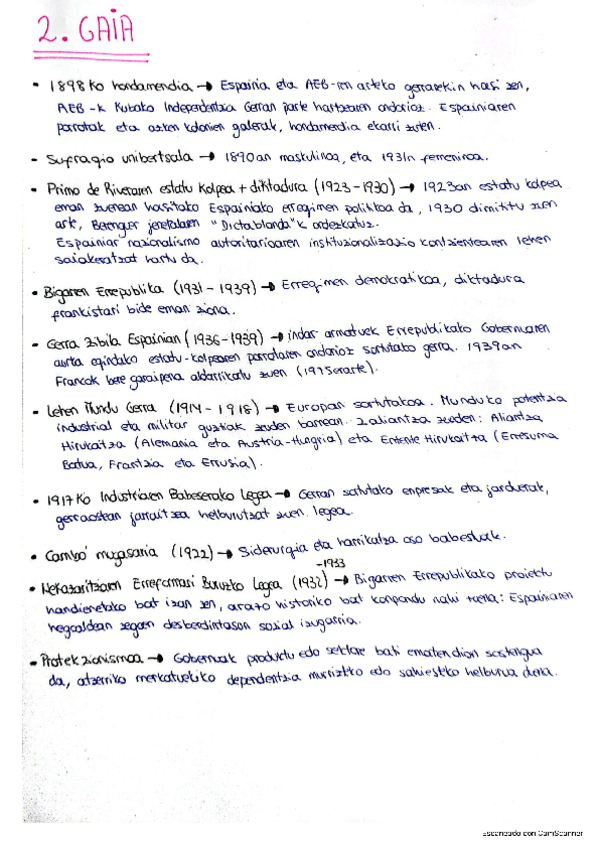 2. GAIA
• 1898ko hondamendia → Espainia eta AEB-ren arteko gerrarekin hasi zen,
AEB-k Kubako Independentzia Gerran parte hartzearen ondorioz. Espainiaren
porrotak eta azken kolonien galerak, hondamendia ekarri zuten.
• Sufragio unibertsala → 1890an maskulinoa, eta 1931n femeninoa.
• Primo de Riveraren estatu kolpea + diktadura (1923-1930) → 1923an estatu kolpea
eman zuenean hasitako Espainiako erregimen politikoa da, 1930 dimititu zuen
arte, Berenguer jeneralaren "Dictablanda"k ordezkatuz.
Espainiar nazionalismo autoritarioaren instituzionalizazio kontzientearen lehen
saiakeratzat hartu da.
• Bigarren Errepublika (1931-1939) → Erregimen demokratikoa, diktadura
frankistari bide eman ziona.
• Gerra Zibila Espainian (1936-1939) → indar armatuek Errepublikako Gobernuaren
aurka egindako estatu-kolpearen porrotaren ondorioz sortutako gerra. 1939an
Francok bere garaipena aldarrikatu zuen (1975erarte).
• Lehen Mundu Gerra (1914-1918) → Europan sortutakoa. Munduko potentzia
industrial eta militar guztiak zeuden barrean. 2 aliantza zeuden: Aliantza
Hirukoitza (Alemania eta Austria-Hungria) eta Entente Hirukoitza (Erresuma
Batua, Frantzia eta Errusia).
• 1917ko Industriaren Babeserako Legea → Gerran sortutako enpresak eta jarduerak,
gerraostean jarraitzea helburutzat zuen legea.
• Cambó mugasaria (1922) → Siderurgia eta harrikatza oso babestuak.
-1933
• Nekazaritzaren Erreformari Buruzko Legea (1932) → Bigarren Errepublikako proiektu
handienetako bat izan zen, arazo historiko bat konpondu nahi zuena: Espainiaren
hegoaldean zegoen desberdintasun sozial izugarria.
• Protekzionismoa → Gobernuak produktu edo sektore bati ematen dion sostengua
da, atzerriko merkatuekiko dependentzia murrizteko edo sahiesteko helburua duena.
Escaneado con CamScanner